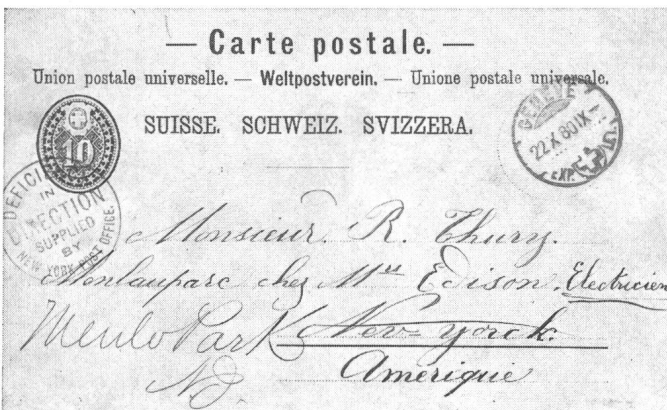 — Carte postale. —
Union postale universelle. — Weltpostverein. — Unione postale universale.
SUISSE. SCHWEIZ. SVIZZERA.
10
GENÈVE
22 X 80 IX
EXP.
DEFICI
IN
DIRECTION
SUPPLIED
BY
NEW YORK POST OFFICE.
Monsieur. R. Thury.
Menlauparc chez Mr Edison. Electricien
Menlo Park New-yorck.
N.J. Amérique